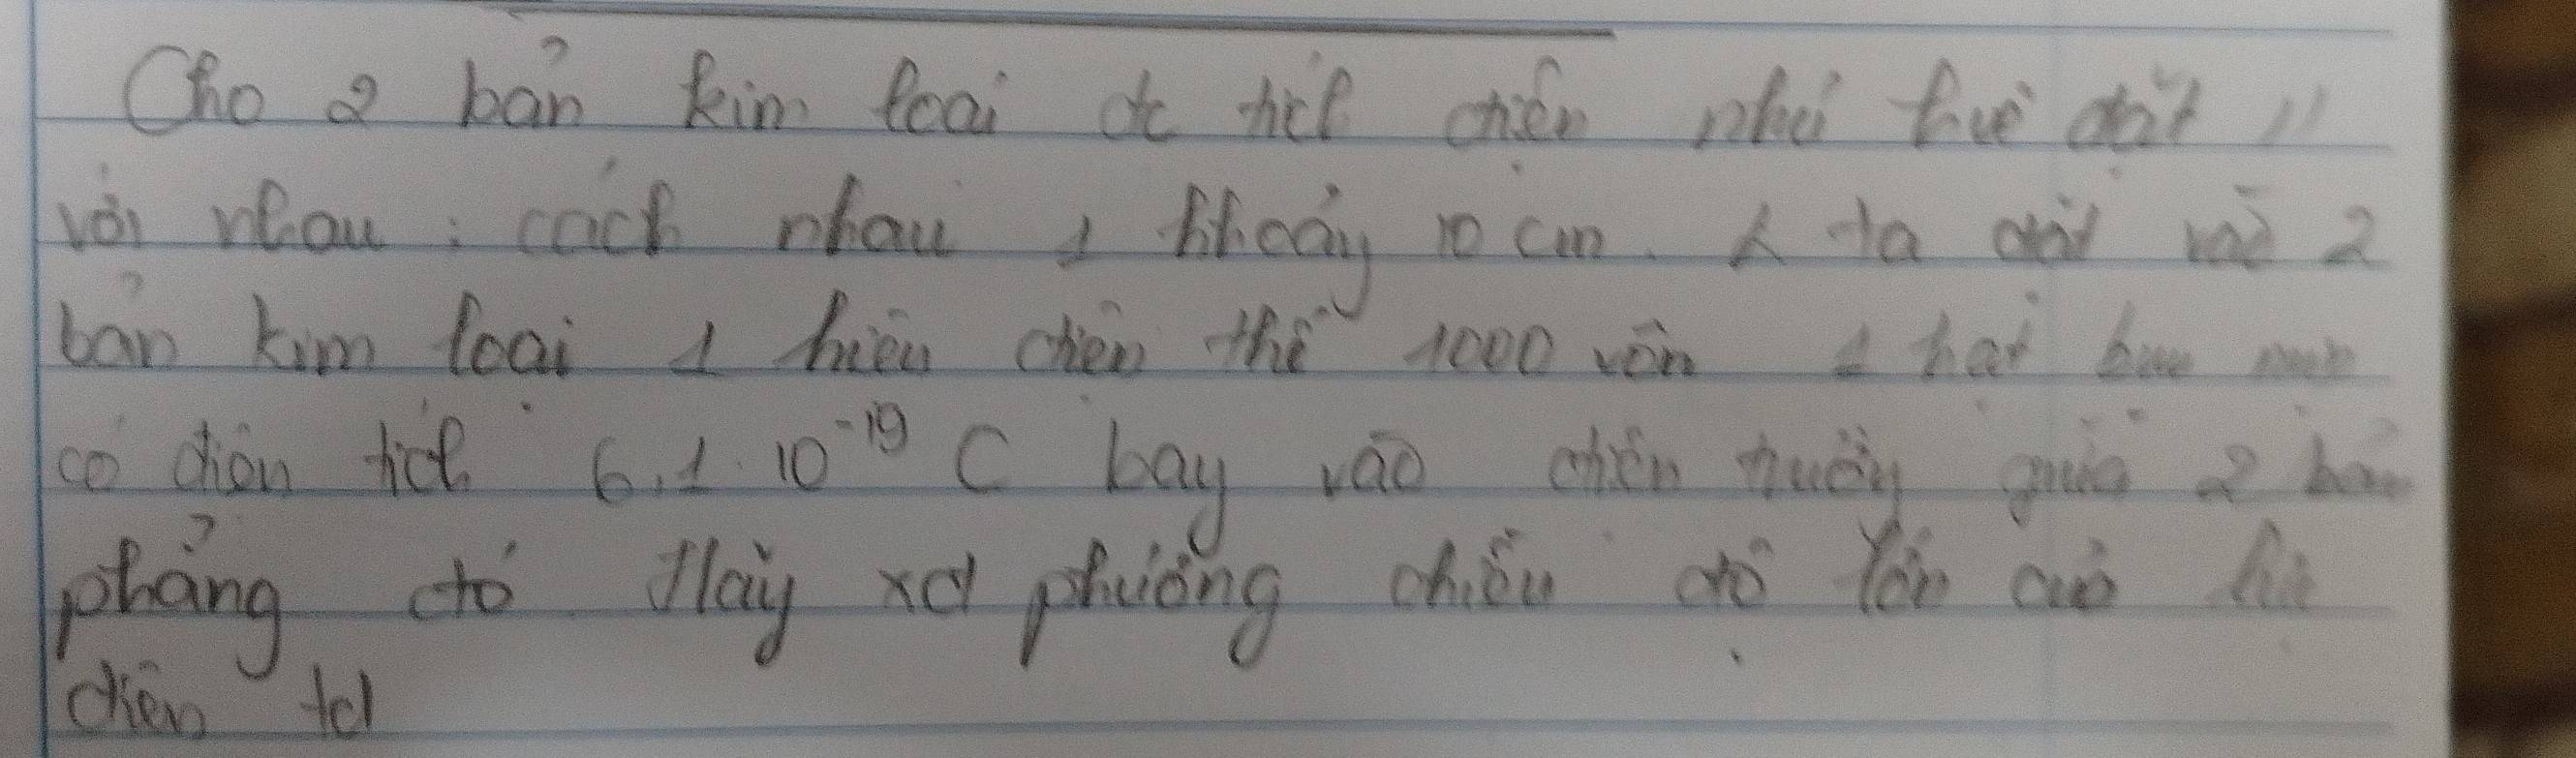 Cho 2 bản kim loại đc tích điện như hvẽ đặt //
với nhau; cách nhau 1 khoảng 10 cm. ta đặt vào 2
bản kim loại 1 hiệu điện thế 1000 vôn 1 hạt bụi
có điện tích 6,1.10⁻¹⁹ C bay vào điện trường giữa 2 bản
phẳng đó Hãy xđ phương chiều độ lớn của lực
điện tđ